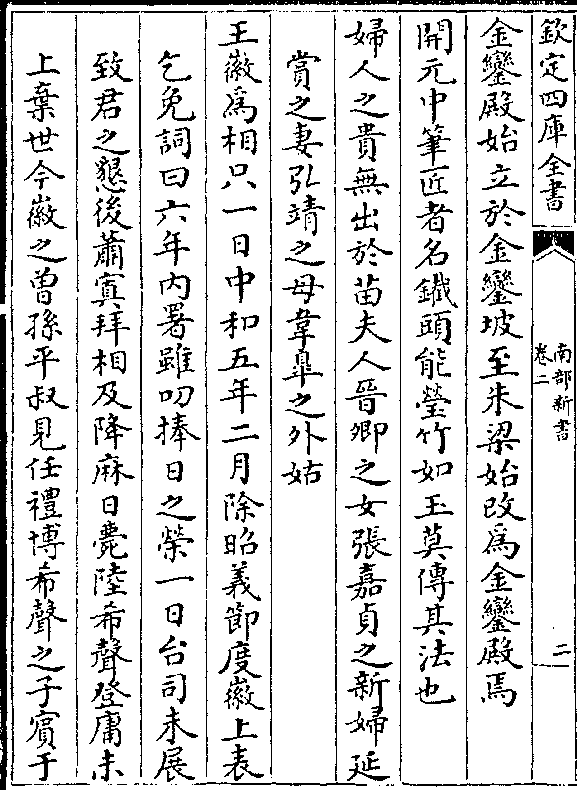 欽定四庫全書
南部新書
卷二
二
金鑾殿始立於金鑾坡至朱梁始改為金鑾殿焉
開元中筆匠者名鐵頭能瑩竹如玉莫傳其法也
婦人之貴無出於苗夫人晉卿之女張嘉貞之新婦延
賞之妻弘靖之母韋臯之外姑
王徽爲相只一日中和五年二月除昭義節度徽上表
乞免詞曰六年內署雖叨捧日之榮一日台司未展
致君之懇後蕭寘拜相及降麻日薨陸希聲登庸未
上棄世今徽之曽孫平叔見任禮博希聲之子賓于